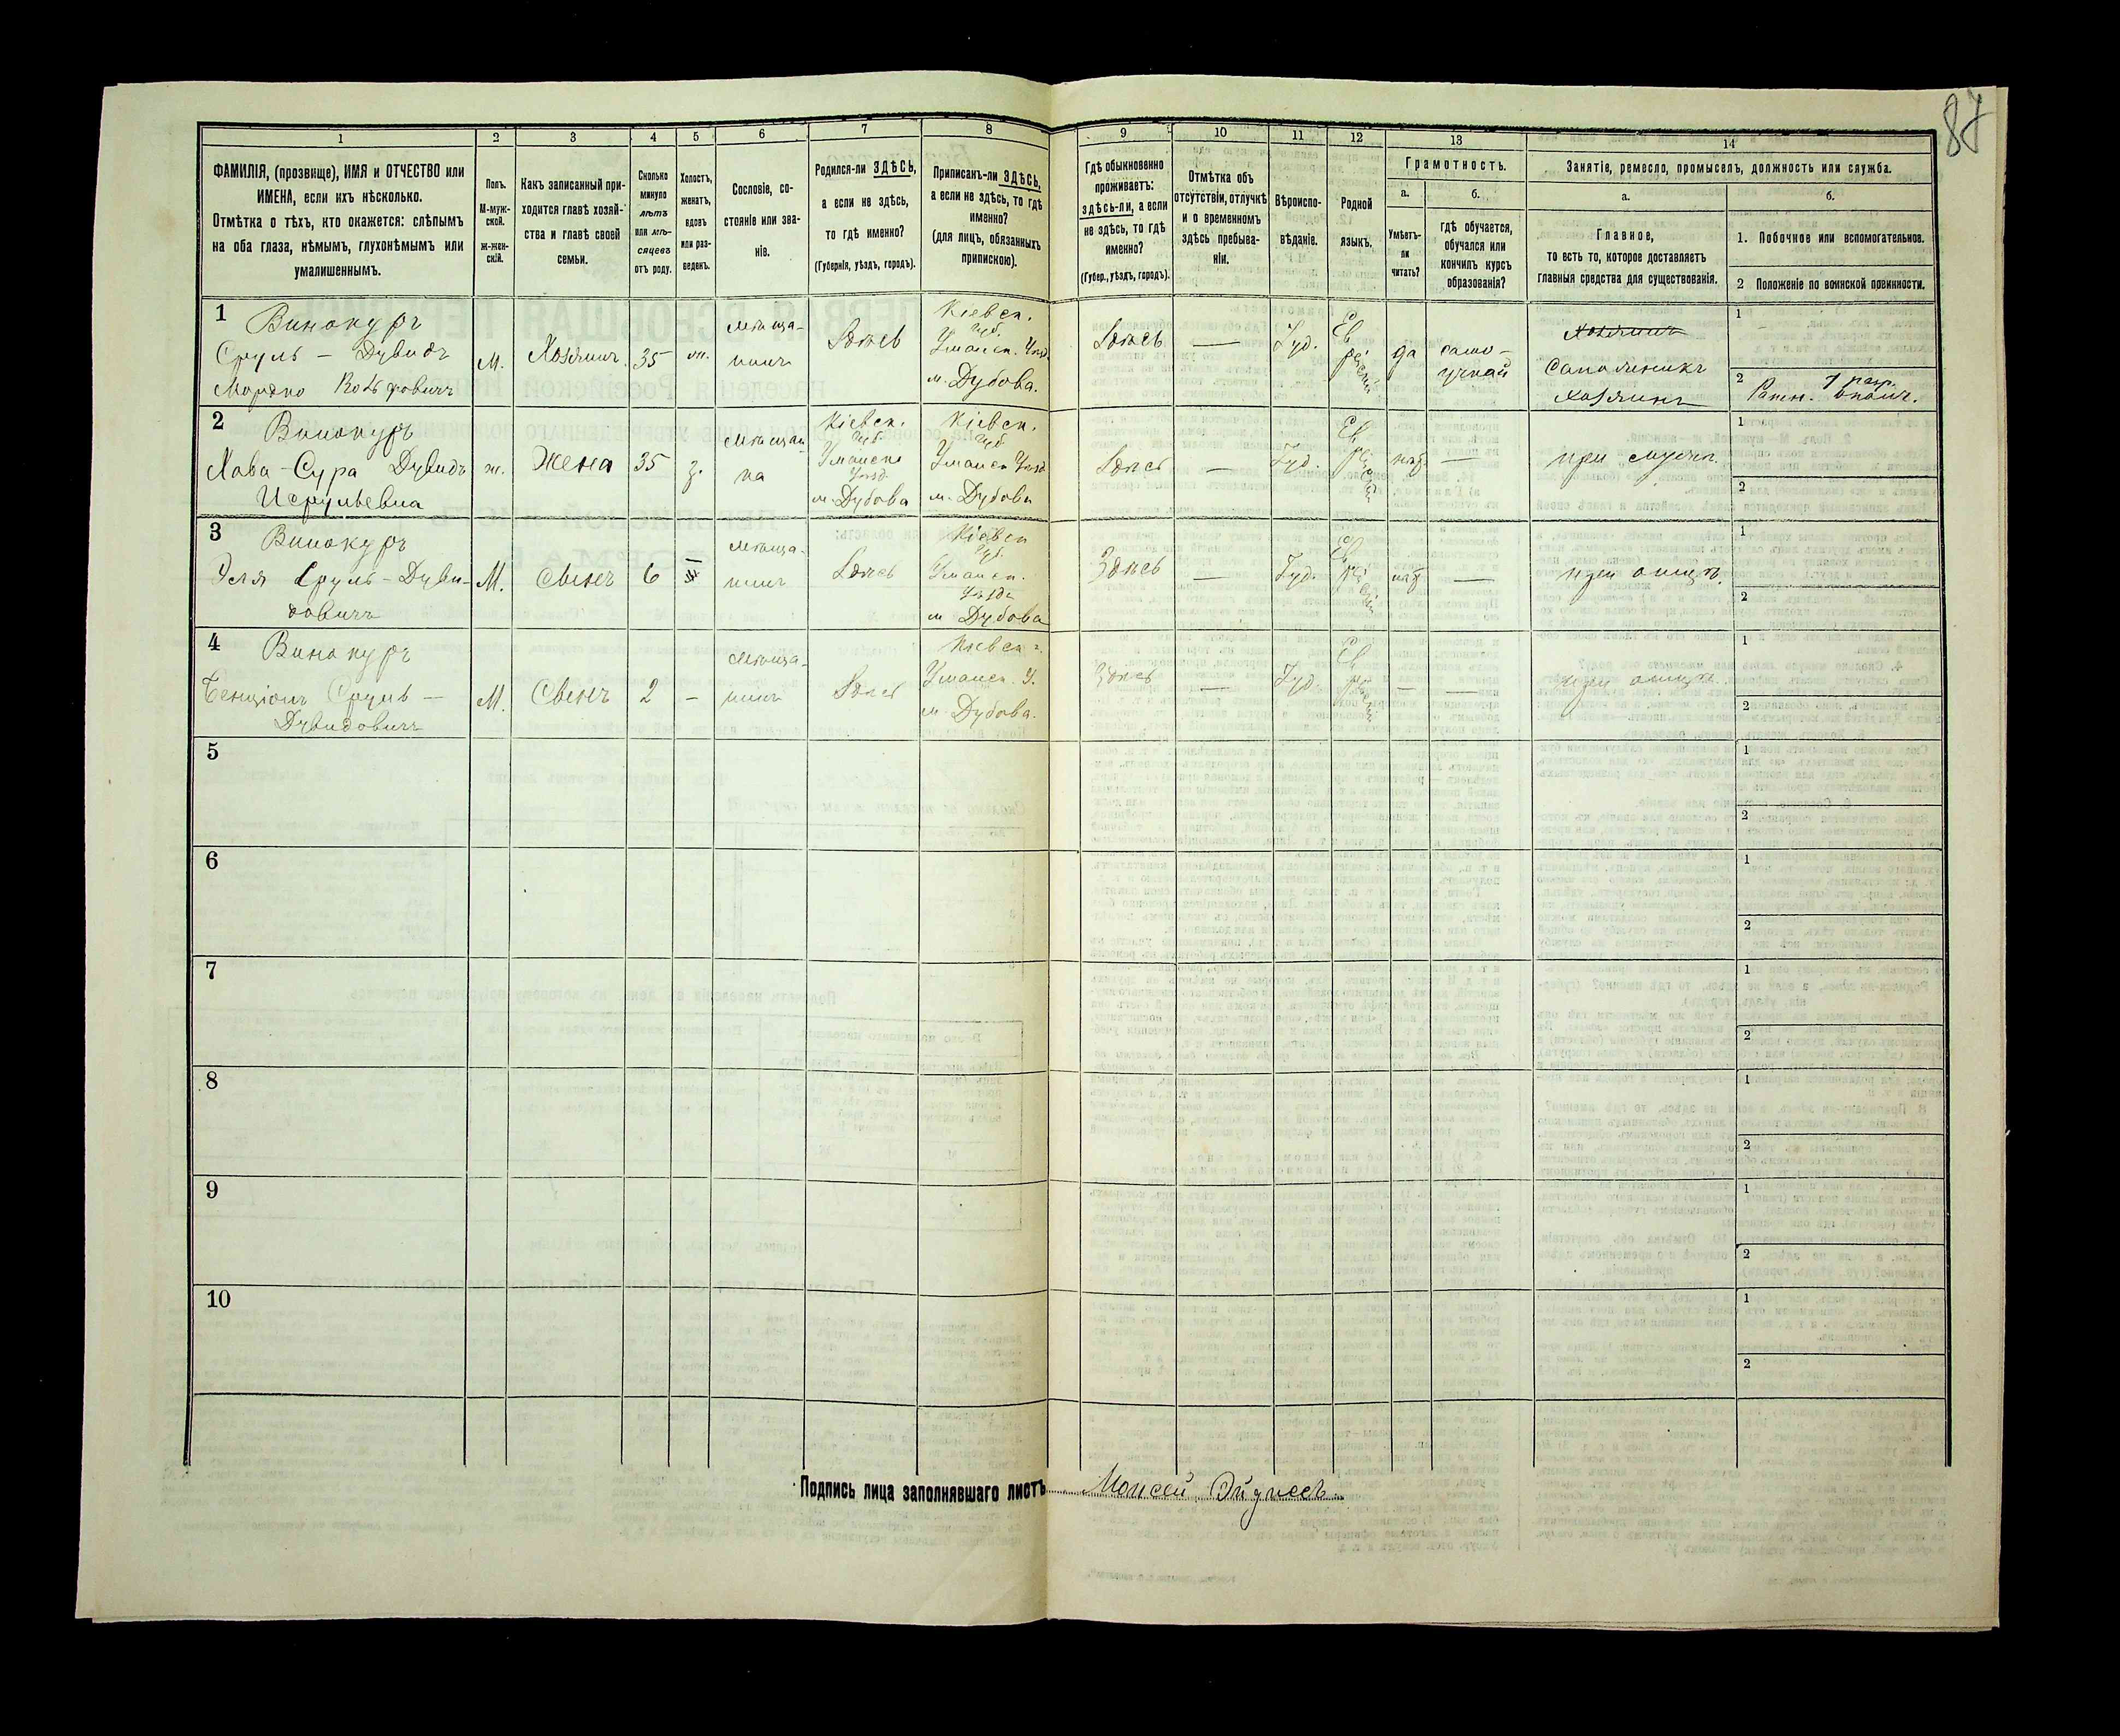 87
1
2
3
4
5
6
7
8
9
10
11
12
13
14
ФАМИЛІЯ, (прозвище), ИМЯ и ОТЧЕСТВО или
ИМЕНА, если ихъ нѣсколько.
Отмѣтка о тѣхъ, кто окажется: слѣпымъ
на оба глаза, нѣмымъ, глухонѣмымъ или
умалишеннымъ.
Полъ.
М-муж-
ской.
ж-жен-
скій.
Какъ записанный при-
ходится главѣ хозяй-
ства и главѣ своей
семьи.
Сколько
минуло
лѣтъ
или мѣ-
сяцевъ
отъ роду.
Холостъ,
женатъ,
вдовъ
или раз-
веденъ.
Сословіе, со-
стояніе или зва-
ніе.
Родился-ли ЗДѢСЬ,
а если не здѣсь,
то гдѣ именно?
(Губернія, уѣздъ, городъ).
Приписанъ-ли ЗДѢСЬ,
а если не здѣсь, то гдѣ
именно?
(для лицъ, обязанныхъ
припискою).
Гдѣ обыкновенно
проживаетъ:
здѣсь-ли, а если
не здѣсь, то гдѣ
именно?
(Губер., уѣздъ, городъ).
Отмѣтка объ
отсутствіи, отлучкѣ
и о временномъ
здѣсь пребыва-
ніи.
Вѣроиспо-
вѣданіе.
Родной
языкъ.
Грамотность.
а.
Умѣетъ-
ли
читать?
б.
гдѣ обучается,
обучался или
кончилъ курсъ
образованія?
Занятіе, ремесло, промыселъ, должность или служба.
а.
Главное,
то есть то, которое доставляетъ
главныя средства для существованія.
б.
1. Побочное или вспомогательное.
2 Положеніе по воинской повинности.
1
Винокуръ
Сруль - Дувидъ
Мордко
М.
Хозяинъ
35
ж.
мѣща-
нинъ
Здѣсь
Кіевск.
Губ.
Уманск. Уѣзд.
м. Дубова.
Здѣсь
—
Іуд.
Ев
рейскій
да
само-
учкай
Хозяинъ
Сапожникъ
Хозяинъ
1
2 Ратн. 1 разр. ополч.
2
Винокуръ
Хава - Сура Дувидъ
Исрульевна
ж.
Жена
35
з.
мѣщан
ка
Кіевск.
Губ.
Уманск
Уѣзд.
м. Дубова
Кіевск.
Губ.
Уманск Уѣзд
м. Дубова
Здѣсь
—
Іуд.
Ев
рейскій
нѣт
—
при мужѣ.
1
2
3
Винокуръ
Эля Сруль - Дуви-
довичъ
М.
Сынъ
6
—
мѣща-
нинъ
Здѣсь
Кіевск
Губ.
Уманск.
Уѣзд.
м Дубова
Здѣсь
—
Іуд.
Ев
рейскій
нѣт
—
при отцѣ.
1
2
4
Винокуръ
Бенціонъ Сруль -
Дувидовичъ
М.
Сынъ
2
—
мѣща-
нинъ
Здѣсь
Кіевск г.
Уманск. У.
м. Дубова.
Здѣсь
—
Іуд.
Ев
рейскій
—
—
при отцѣ.
1
2
5
1
2
6
1
2
7
1
2
8
1
2
9
1
2
10
1
2
Подпись лица заполнявшаго листъ Моисей